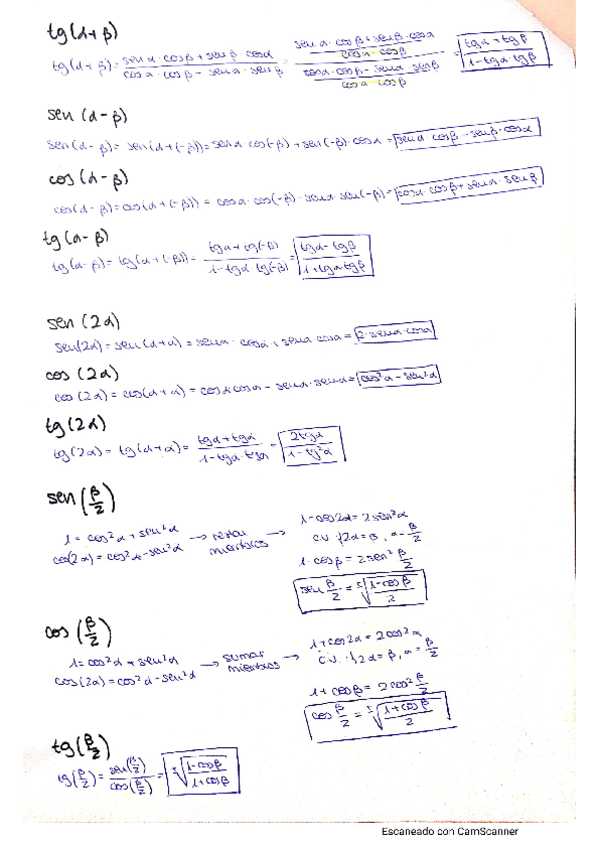 tg(α+β)
tg(α+β)= (senα·cosβ+senβ·cosα)/(cosα·cosβ-senα·senβ) = ((senα·cosβ+senβ·cosα)/(cosα·cosβ))/((cosα·cosβ-senα·senβ)/(cosα·cosβ)) = (tgα+tgβ)/(1-tgα·tgβ)
sen(α-β)
sen(α-β)= sen(α+(-β))=senα·cos(-β)+sen(-β)·cosα = senα·cosβ-senβ·cosα
cos(α-β)
cos(α-β)=cos(α+(-β)) = cosα·cos(-β)-senα·sen(-β)= cosα·cosβ+senα·senβ
tg(α-β)
tg(α-β)= tg(α+(-β))= (tgα+tg(-β))/(1-tgα·tg(-β)) = (tgα-tgβ)/(1+tgα·tgβ)
sen(2α)
sen(2α)=sen(α+α)=senα·cosα+senα·cosα= 2·senα·cosα
cos(2α)
cos(2α)=cos(α+α)=cosα·cosα-senα·senα= cos²α-sen²α
tg(2α)
tg(2α)=tg(α+α)= (tgα+tgα)/(1-tgα·tgα) = 2tgα/(1-tg²α)
sen(β/2)
1=cos²α+sen²α
cos(2α)=cos²α-sen²α
→ restar miembros →
1-cos2α=2sen²α
c.v. {2α=β, α=β/2
1-cosβ=2sen²β/2
sen β/2 = ±√((1-cosβ)/2)
cos(β/2)
1=cos²α+sen²α
cos(2α)=cos²α-sen²α
→ sumar miembros →
1+cos2α=2cos²α
c.v. {2α=β, α=β/2
1+cosβ=2cos²β/2
cos β/2 = ±√((1+cosβ)/2)
tg(β/2)
tg(β/2)= sen(β/2)/cos(β/2) = ±√((1-cosβ)/(1+cosβ))
Escaneado con CamScanner